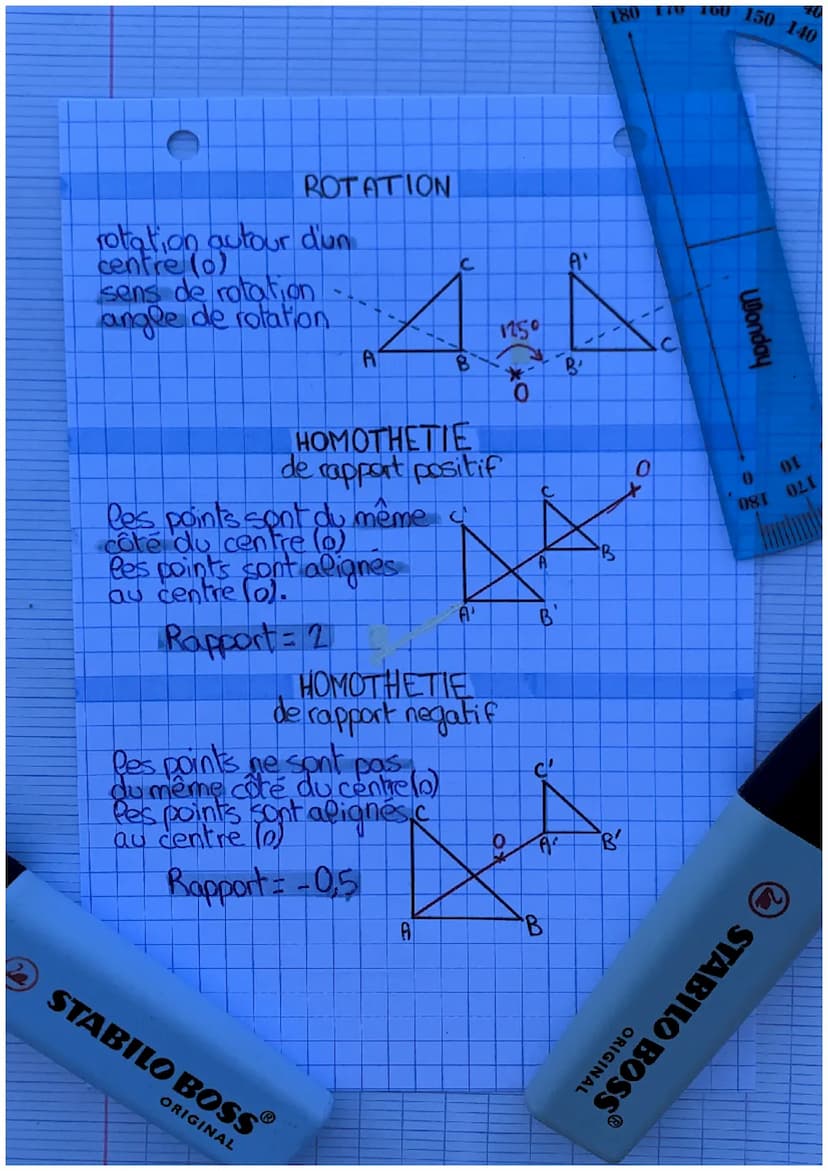 180 170 160 150 140 40
ROTATION
rotation autour d'un
centre (o)
sens de rotation
angle de rotation
C
A
B
125°
O
A'
B'
C
Wonday
HOMOTHETIE
de rapport positif
les points sont du même
côté du centre (o)
les points sont alignés
au centre (o).
Rapport = 2
C'
A'
B'
C
A
B
O
0 10
180 170
HOMOTHETIE
de rapport negatif
les points ne sont pas
du même côté du centre (o)
les points sont alignés
au centre (o)
Rapport = -0,5
C
A
B
O
C'
A'
B'
STABILO BOSS®
ORIGINAL
STABILO BOSS®
ORIGINAL